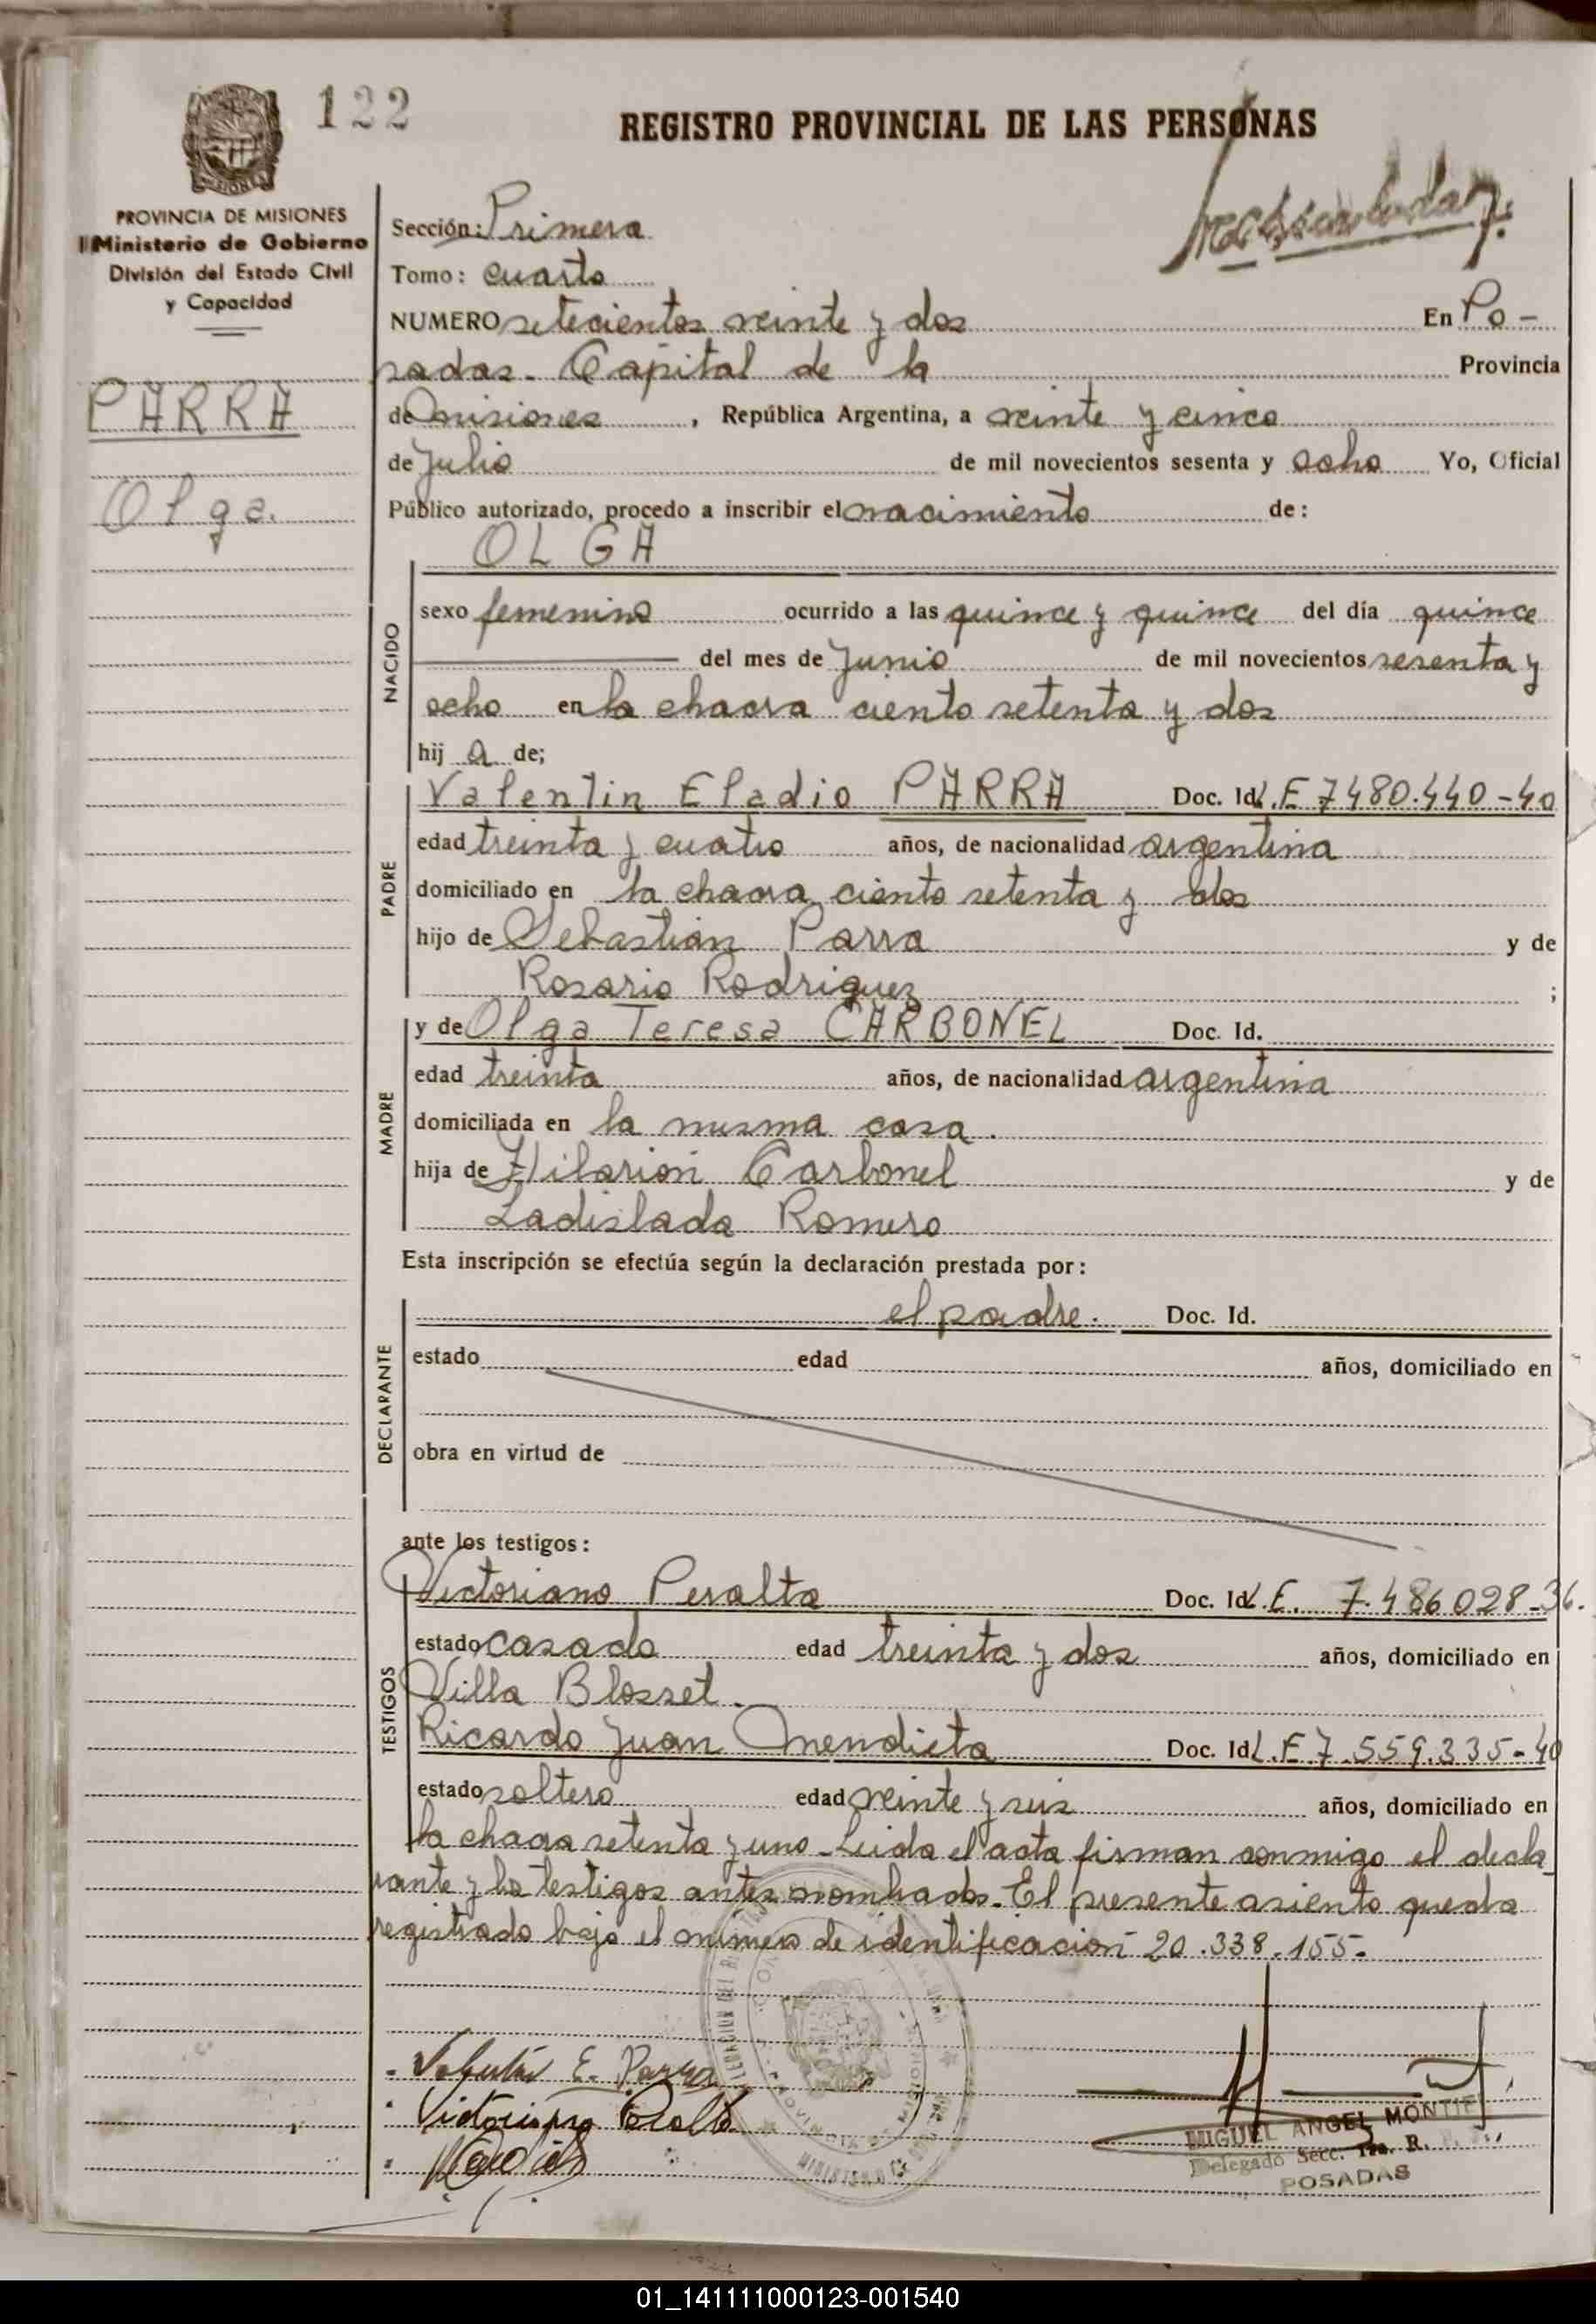 122
REGISTRO PROVINCIAL DE LAS PERSONAS
PROVINCIA DE MISIONES
Ministerio de Gobierno
División del Estado Civil
y Capacidad
PARRA
Olga.
Sección: Primera
Tomo: cuarto
NUMERO setecientos veinte y dos En Po-
sadas. Capital de la Provincia
de Misiones, República Argentina, a veinte y cinco
de Julio de mil novecientos sesenta y ocho Yo, Oficial
Público autorizado, procedo a inscribir el nacimiento de:
OLGA
NACIDO
sexo femenino ocurrido a las quince y quince del día quince
del mes de Junio de mil novecientos sesenta y
ocho en la chacra ciento setenta y dos
hij a de;
PADRE
Valentin Eladio PARRA Doc. Id. L.E 7480.440-40
edad treinta y cuatro años, de nacionalidad argentina
domiciliado en la chacra ciento setenta y dos
hijo de Sebastián Parra y de
Rosario Rodriguez ;
MADRE
y de Olga Teresa CARBONEL Doc. Id.
edad treinta años, de nacionalidad argentina
domiciliada en la misma casa.
hija de Hilarión Carbonel y de
Ladislada Romero
Esta inscripción se efectúa según la declaración prestada por:
DECLARANTE
el padre. Doc. Id.
estado edad años, domiciliado en
obra en virtud de
ante los testigos:
TESTIGOS
Victoriano Peralta Doc. Id. L.E. 7.486028-36.
estado casado edad treinta y dos años, domiciliado en
Villa Blosset.
Ricardo Juan Mendieta Doc. Id. L.E 7.559.335-40
estado soltero edad veinte y seis años, domiciliado en
la chacra setenta y uno. Leida el acta firman conmigo el decla
rante y los testigos antes nombrados. El presente asiento queda
registrado bajo el número de identificación 20.338.155.
Valentín E. Parra
Victoriano Peralta
MIGUEL ANGEL MONTIEL
Delegado Secc. 1ra. R.
POSADAS
01_141111000123-001540